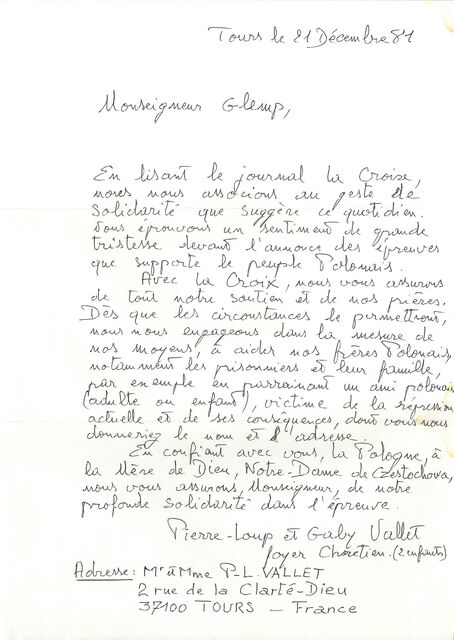 Tours le 21 Décembre 81
Monseigneur Glemp,
En lisant le journal La Croix,
nous nous associons au geste de
solidarité que suggère ce quotidien.
Nous éprouvons un sentiment de grande
tristesse devant l'annonce des épreuves
que supporte le peuple Polonais.
Avec La Croix, nous vous assurons
de tout notre soutien et de nos prières.
Dès que les circonstances le permettront,
nous nous engageons dans la mesure de
nos moyens, à aider nos frères Polonais,
notamment les prisonniers et leur famille,
par exemple en parrainant un ami polonais
(adulte ou enfant), victime de la répression
actuelle et de ses conséquences, dont vous nous
donneriez le nom et l'adresse.
En confiant avec vous, la Pologne, à
la Mère de Dieu, Notre-Dame de Czestochowa,
nous vous assurons, Monseigneur, de notre
profonde solidarité dans l'épreuve.
Pierre-Loup et Gaby Vallet
foyer Chrétien. (2 enfants)
Adresse: Mr & Mme P-L. VALLET
2 rue de la Clarté-Dieu
37100 TOURS — France